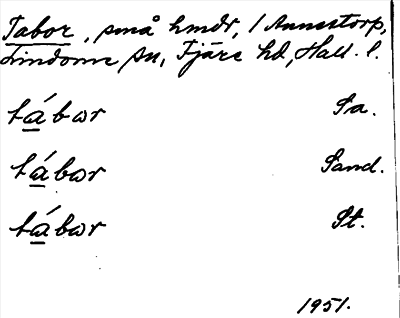 Tabor, små hmdr, 1 Annestorp,
Lindome sn, Fjäre hd, Hall. l.
tábor Sa.
tábor Sand.
tábor St.
1951.